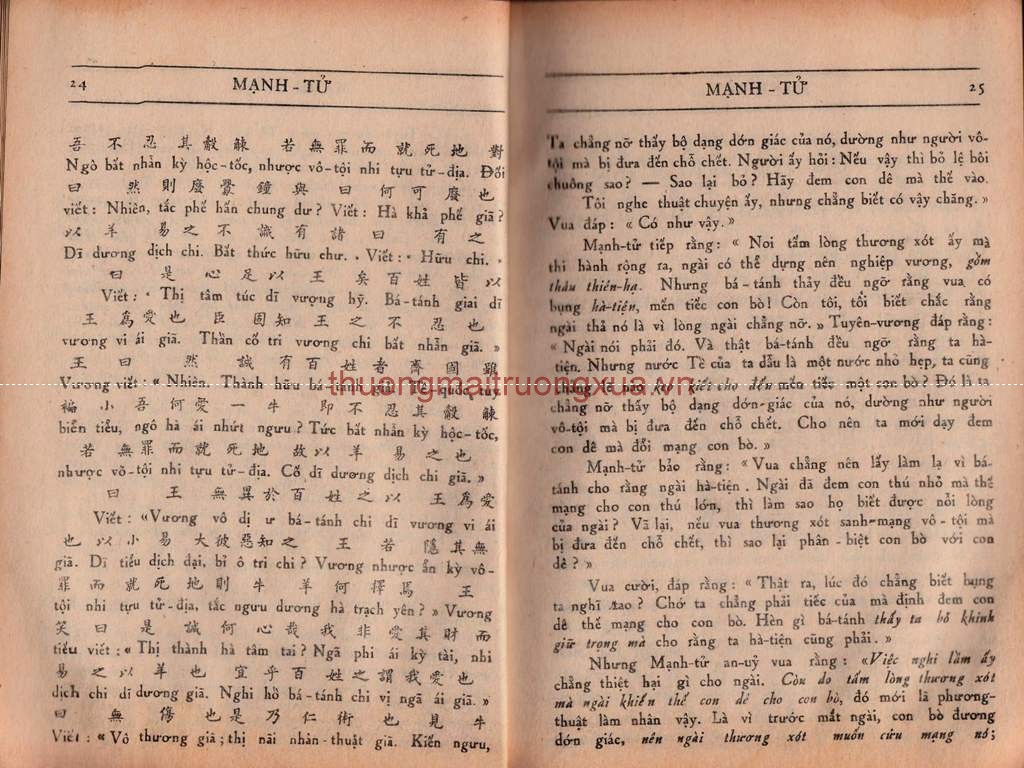 24
MẠNH - TỬ
吾 不 忍 其 觳 觫 若 無 罪 而 就 死 地 對
Ngô bất nhẫn kỳ hộc-tốc, nhược vô-tội nhi tựu tử-địa. Đối
曰 然 則 廢 釁 鐘 與 曰 何 可 廢 也
viết : Nhiên, tắc phế hấn chung dư ? Viết : Hà khả phế giã ?
以 羊 易 之 不 識 有 諸 曰 有 之
Dĩ dương dịch chi. Bất thức hữu chư. » Viết : « Hữu chi. »
曰 是 心 足 以 王 矣 百 姓 皆 以
Viết : « Thị tâm túc dĩ vượng hỹ. Bá-tánh giai dĩ
王 爲 愛 也 臣 固 知 王 之 不 忍 也
vương vi ái giã. Thần cố tri vương chi bất nhẫn giã. »
王 曰 然 誠 有 百 姓 者 齊 國 雖
Vương viết : « Nhiên. Thành hữu bá-tánh giả. Tề-quốc tuy
褊 小 吾 何 愛 一 牛 即 不 忍 其 觳 觫
biển tiểu, ngô hà ái nhứt ngưu ? Tức bất nhẫn kỳ hộc-tốc,
若 無 罪 而 就 死 地 故 以 羊 易 之 也
nhược vô-tội nhi tựu tử-địa. Cố dĩ dương dịch chi giã. »
曰 王 無 異 於 百 姓 之 以 王 爲 愛
Viết : «Vương vô dị ư bá-tánh chi dĩ vương vi ái
也 以 小 易 大 彼 惡 知 之 王 若 隱 其 無
giã. Dĩ tiểu dịch đại, bỉ ô tri chi ? Vương nhược ẩn kỳ vô-
罪 而 就 死 地 則 牛 羊 何 擇 焉 王
tội nhi tựu tử-địa, tắc ngưu dương hà trạch yên ? » Vương
笑 曰 是 誠 何 心 哉 我 非 愛 其 財 而
tiếu viết : « Thị thành hà tâm tai ? Ngã phi ái kỳ tài, nhi
易 之 以 羊 也 宜 乎 百 姓 之 謂 我 愛 也
dịch chi dĩ dương giã. Nghi hồ bá-tánh chi vị ngã ái giã. »
曰 無 傷 也 是 乃 仁 術 也 見 牛
Viết : « Vô thương giã ; thị nãi nhân-thuật giã. Kiến ngưu,
MẠNH - TỬ
25
Ta chẳng nỡ thấy bộ dạng dớn giác của nó, dường như người vô-
tội mà bị đưa đến chỗ chết. Người ấy hỏi : Nếu vậy thì bỏ lệ bôi
chuông sao ? — Sao lại bỏ ? Hãy đem con dê mà thế vào.
Tôi nghe thuật chuyện ấy, nhưng chẳng biết có vậy chăng. »
Vua đáp : « Có như vậy. »
Mạnh-tử tiếp rằng : « Noi tấm lòng thương xót ấy mà
thi hành rộng ra, ngài có thể dựng nên nghiệp vương, gồm
thâu thiên-hạ. Nhưng bá-tánh thảy đều ngỡ rằng vua có
bụng hà-tiện, mến tiếc con bò ! Còn tôi, tôi biết chắc rằng
ngài thả nó là vì lòng ngài chẳng nỡ. » Tuyên-vương đáp rằng :
« Ngài nói phải đó. Và thật bá-tánh đều ngỡ rằng ta hà-
tiện. Nhưng nước Tề của ta dẫu là một nước nhỏ hẹp, ta cũng
chẳng nào keo kiết cho đến mến tiếc một con bò ? Đó là ta
chẳng nỡ thấy bộ dạng dớn-giác của nó, dường như người
vô-tội mà bị đưa đến chỗ chết. Cho nên ta mới dạy đem
con dê mà đổi mạng con bò. »
Mạnh-tử bảo rằng : « Vua chẳng nên lấy làm lạ vì bá-
tánh cho rằng ngài hà-tiện. Ngài đã đem con thú nhỏ mà thế
mạng cho con thú lớn, thì làm sao họ biết được nỗi lòng
của ngài ? Vả lại, nếu vua thương xót sanh-mạng vô-tội mà
bị đưa đến chỗ chết, thì sao lại phân-biệt con bò với con
dê ? »
Vua cười, đáp rằng : « Thật ra, lúc đó chẳng biết bụng
ta nghĩ sao ? Chớ ta chẳng phải tiếc của mà định đem con
dê thế mạng cho con bò. Hèn gì bá-tánh thấy ta bỏ khinh
giữ trọng mà cho rằng ta hà-tiện cũng phải. »
Nhưng Mạnh-tử an-uỷ vua rằng : «Việc nghi lầm ấy
chẳng thiệt hại gì cho ngài. Còn do tấm lòng thương xót
mà ngài khiến thế con dê cho con bò, đó mới là phương-
thuật làm nhân vậy. Là vì trước mắt ngài, con bò đương
dớn giác, nên ngài thương xót muốn cứu mạng nó ;
thuongmaitruongxua.vn